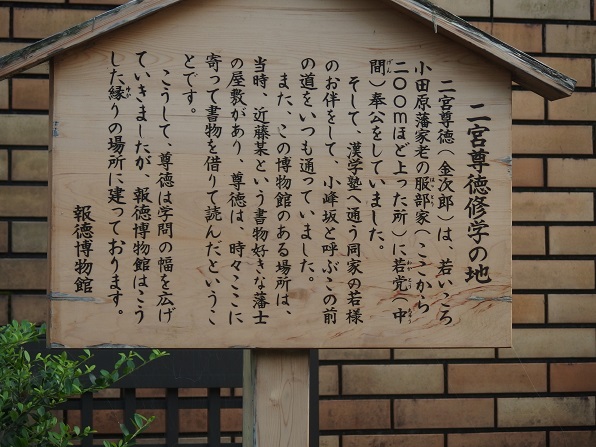 二宮尊徳修学の地
二宮尊徳（金次郎）は、若いころ
小田原藩家老の服部家（ここから
二〇〇mほど上った所）に若党（中
間）奉公をしていました。
そして、漢学塾へ通う同家の若様
のお伴をして、小峰坂と呼ぶこの前
の道をいつも通っていました。
また、この博物館のある場所は、
当時、近藤某という書物好きな藩士
の屋敷があり、尊徳は、時々ここに
寄って書物を借りて読んだというこ
とです。
こうして、尊徳は学問の幅を広げ
ていきましたが、報徳博物館はこう
した縁りの場所に建っております。
報徳博物館